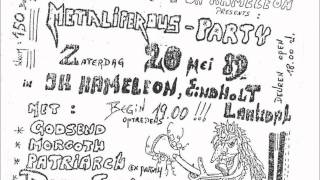 JH KAMELEON
PRESENTS :
METALIFEROUS - PARTY
ZATERDAG 20 MEI 89
in JH KAMELEON, EINDHOLT
LAAKDAL
DEUREN OPEN
18.00 u.
INKOM : 150
MET : BEGIN 19.00 !!!
OPTREDENS
* GODSEND
* MORGOTH
* PATRIARCH